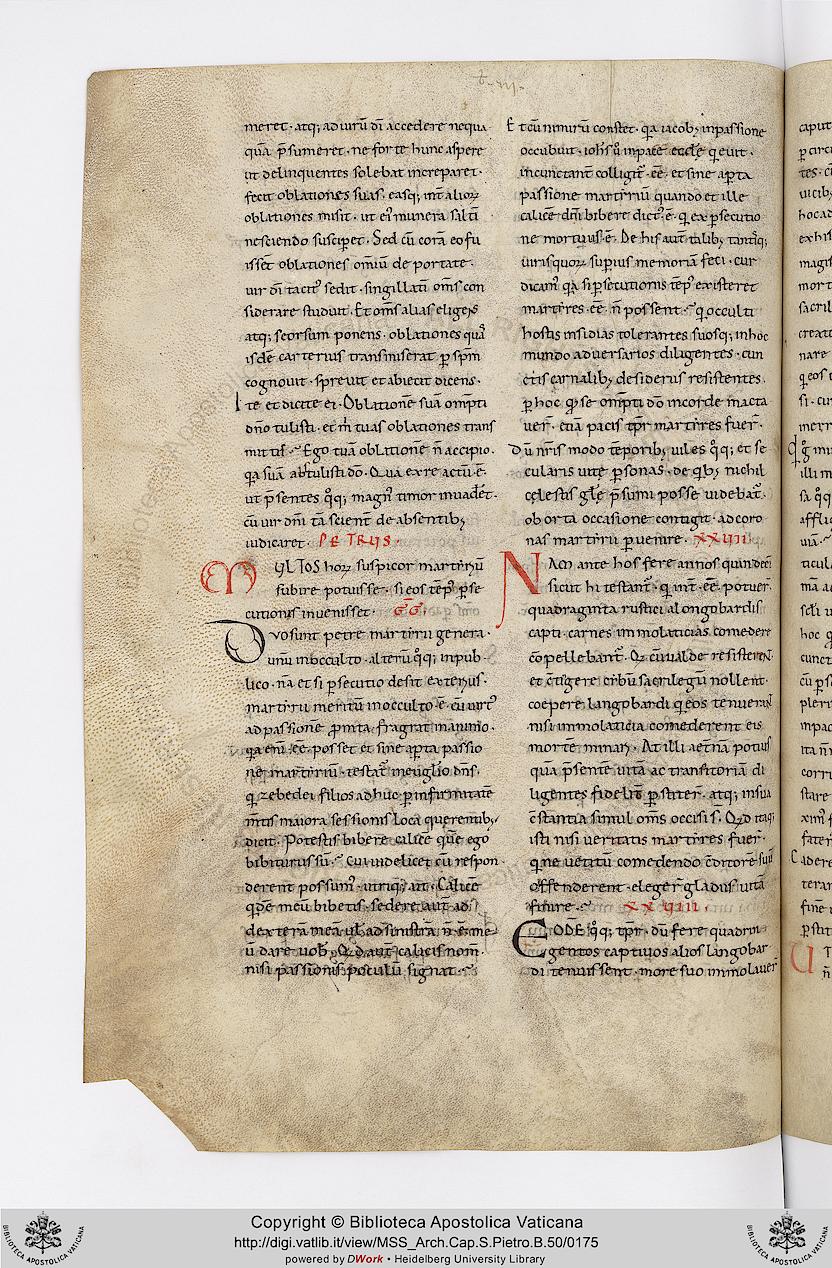 meret · atq; ad virū dī accedere nequa
quā p̄sumeret · ne forte hunc aspere
ut delinquentes solebat increparet ·
fecit oblationes suas · easq; int̄ alioꝝ
oblationes misit · ut ei' munera saltī
nesciendo susciperet · Sed cū corā eo fu
issēt oblationes om̄iū deportate ·
vir dī tacit' sedit · singillatī om̄s con
siderare studuit · Et om̄s alias eligens
atq; seorsum ponens · oblationes quas
isdē carterius transmiserat p sp̄m
cognovit · sprevit et abiecit dicens ·
Ite et dicite ei · Oblationē suā om̄pti
dn̄o tulisti · et m̄ tuas oblationes trans
mittis · Ego tuā oblationē n̄ accipio ·
qa suā abstulisti dō · Qua ex re actū ē ·
ut p̄sentes q̄q; magn' timor invaderet ·
cū vir dn̄i tā scient̄ de absentib;
iudicaret · PETRUS ·
MULTOS hoꝝ suspicor martyriū
subire potuisse · si eos tēp' p̄se
cutionis invenisset · GG̅ ·
Duo sunt petre martyrii genera ·
unū in occulto · alterū q̄q; in pub
lico · nā et si p̄secutio desit exterius ·
martyrii meritū in occulto ē · cū virt'
ad passionē p̄mta fragrat in animo ·
qa eni ē̄e · posset et sine aperta passio
ne martyriū · testat̄ in evg̅lio dn̄s ·
q zebedei filios adhuc p infirmitatē
m̄tis maiora sessionis loca querentib;
dicit · Potestis bibere calicē quē ego
bibiturus sū · Cui videlicet cū respon
derent possum' · utriq; ait · Calicē
qdē meū bibetis · sedere aūt ad
dexterā meā ul̄ ad sinistrā n̄ ē me
ū dare vob' · Qd aūt calicis nom̄ ·
nisi passionis poculū signat ·
t · III ·
Et cū nimirū constet · qa iacob; in passione
occubuit · ioh̄s v̊ in pace eccl̄e qevit ·
incunctant̄ colligit̄ · ē̄e · et sine apta
passione martyriū quando et ille
calicē dn̄i bibere dict' ē · q ex p̄secutio
ne mortuus ē · De his aūt talib; tantisq;
virisquoꝝ superius memoriā feci · cur
dicam' qa si p̄secutionis tēp' existeret
martyres · ē̄e n̄ possent · q occulti
hostis insidias tolerantes suosq; in hoc
mundo adversarios diligentes · cun
ctis carnalib; desideriis resistentes ·
p hoc q se om̄pti dō in corde macta
ver̄ · etiā pacis tp̄r martyres fuer̄ ·
Dū nr̄is modo tēporib; viles q̄q; et se
cularis vite p̄sonas · de qb; nichil
celestis gl̄e p̄sumi posse videbat̄ ·
oborta occasione contigit ad coro
nas martyrii pvenire · XXVIII
NAM ante hos fere annos quindeci
sicut hi testant̄ · q int̄ · ē̄e · potuer̄ ·
quadraginta rustici a longobardis
capti · carnes immolaticias comedere
cōpellebant̄ · Qi cū valde resisterent
et cōtigere cibū sacrilegū nollent ·
coepere langobardi q eos tenuerunt
nisi immolaticia comederent eis
mortē minari · At illi aet̄nā potius
quā p̄sentē vitā ac transitoriā di
ligentes fidelit̄ pstiter̄ · atq; in sua
cōstantia simul om̄s occisi s̄ · Qd itaq;
isti nisi veritatis martyres fuer̄ ·
q ne vetitū comedendo cōditorē suū
offenderent · eleger̄ gladiis vitā
finire · XXVIIII ·
EODĒ q̄q; tp̄r · dū fere quadrin
gentos captivos alios langobar
di tenuissent · more suo immolaver̄
Copyright © Biblioteca Apostolica Vaticana
http://digi.vatlib.it/view/MSS_Arch.Cap.S.Pietro.B.50/0175
powered by DWork • Heidelberg University Library